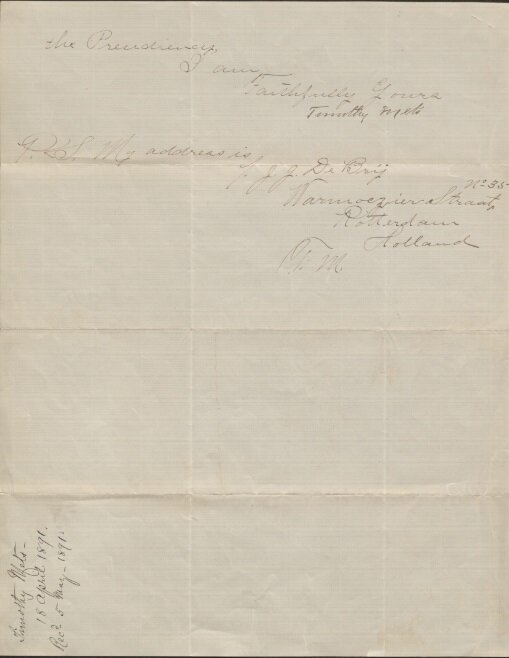 the Presidiency,
I am,
Faithfully Yours
Timothy Mets
P.S. My address is
J. J. De Brij
No 35
Warmoeziers Straat,
Rotterdam
Holland
T. M
Timothy Mets -
18 April 1891.
Recd 5 May - 1891.